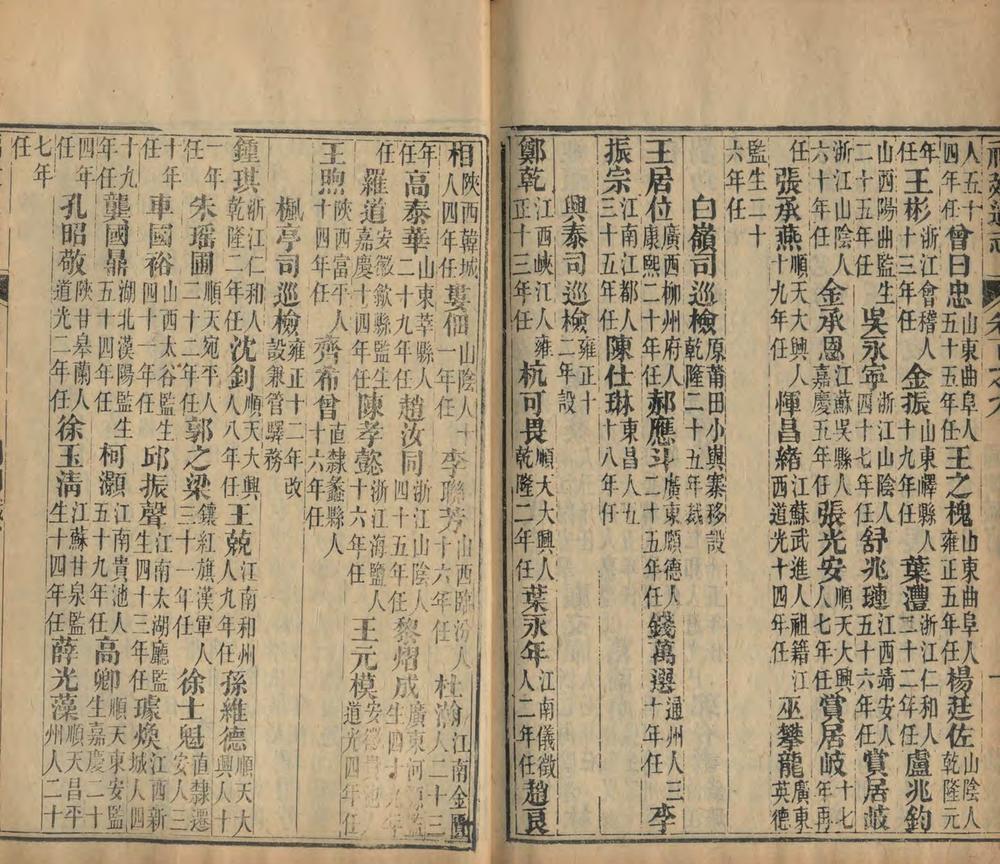 人五十四年任曾日忠山東曲阜人五十五年任王之槐山東曲阜人雍正五年任楊廷佐山陰人乾隆元
年任王彬浙江會稽人十三年任金振山東嶧縣人十九年任葉澧浙江仁和人三十二年任盧兆鈞
山西陽曲監生二十五年任吳永寧浙江山陰人四十七年任舒兆璉江西靖安人五十六年任賞居岐
浙江山陰人六十年任金承恩江蘇吳縣人嘉慶五年任張光安順天大興人七年任賞居岐十七年再
任張承燕順天大興人十九年任惲昌緒江蘇武進人祖籍江西道光十四年任巫攀龍廣東英德
監生二十六年任
白嶺司巡檢原莆田小嶼寨移設乾隆二十五年裁
王居位廣西柳州府人康熙二十年任郝應斗廣東順德人二十五年任錢萬選通州人三十年任李
振宗江南江都人三十五年任陳仕琳東昌人五十八年任
興泰司巡檢雍正十二年設
鄭乾江西峽江人雍正十三年任杭可畏順天大興人乾隆二年任葉永年江南儀徵人二年任趙良
相陝西韓城人四年任婁佃山陰人十一年任李聯芳山西臨汾人十六年任杜瀚江南金匱人二十三
年任高泰華山東莘縣人二十九年任趙汝同浙江山陰人四十五年任黎熠成廣東河源監生四十九年
任羅道安徽歙縣監生嘉慶十四年任陳孝懿浙江海鹽人十六年任王元模安徽貴池人道光四年任
王煦陝西富平人十四年任齊希曾直隸蠡縣人十六年任
楓亭司巡檢雍正十二年改設兼管驛務
鍾琪浙江仁和人乾隆二年任沈釗順天大興人八年任王兢江南和州人九年任孫維德順天大興人十
一年任朱瑤圃順天宛平人二十二年任郭之梁鑲紅旗漢軍人三十一年任徐士魁直隸遷安人三
十年任車國裕山西太谷監生四十一年任邱振聲江南太湖廳監生四十三年任璩煥江西新城人四
十九年任龔國鼎湖北漢陽監生五十四年任柯灝江南貴池人五十九年任高卿順天東安監生嘉慶二十
四年任孔昭敬陝甘皋蘭人道光二年任徐玉清江蘇甘泉監生十四年任薛光藻順天昌平州人二十
七年任